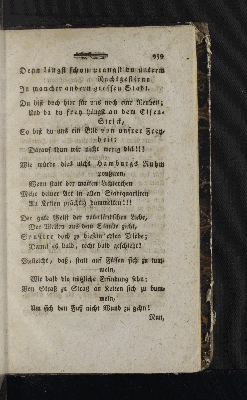 959
Denn längst schon prangst du unserm
Nachtgestirne
In mancher andern grossen Stadt.
Du bist doch hier für uns noch eine Neuheit;
Und da du frey hängst an dem Eisen-
So bist du uns ein Bild von unsrer Frey-
heit;
Darauf thun wir nicht wenig dick!!!
Wie würde dies nicht Hamburgs Ruhm
Wenn statt der matten Lichterchen
Mehr deiner Art in allen Stadtquartieren
An Ketten prächtig bummelten!!!
Der gute Geist der vaterländschen Liebe,
Der Welten aus dem
doch zu diesem edlen Triebe;
Damit es bald, recht bald geschieht!
Vielleicht, daß, statt auf Füssen sich zu tum-
meln,
Wir bald die nützliche Erfindung sehn;
Von Straß zu Straß an Ketten sich zu bum-
meln,
Um sich den Fuß nicht Wund zu gehn!
Nun,